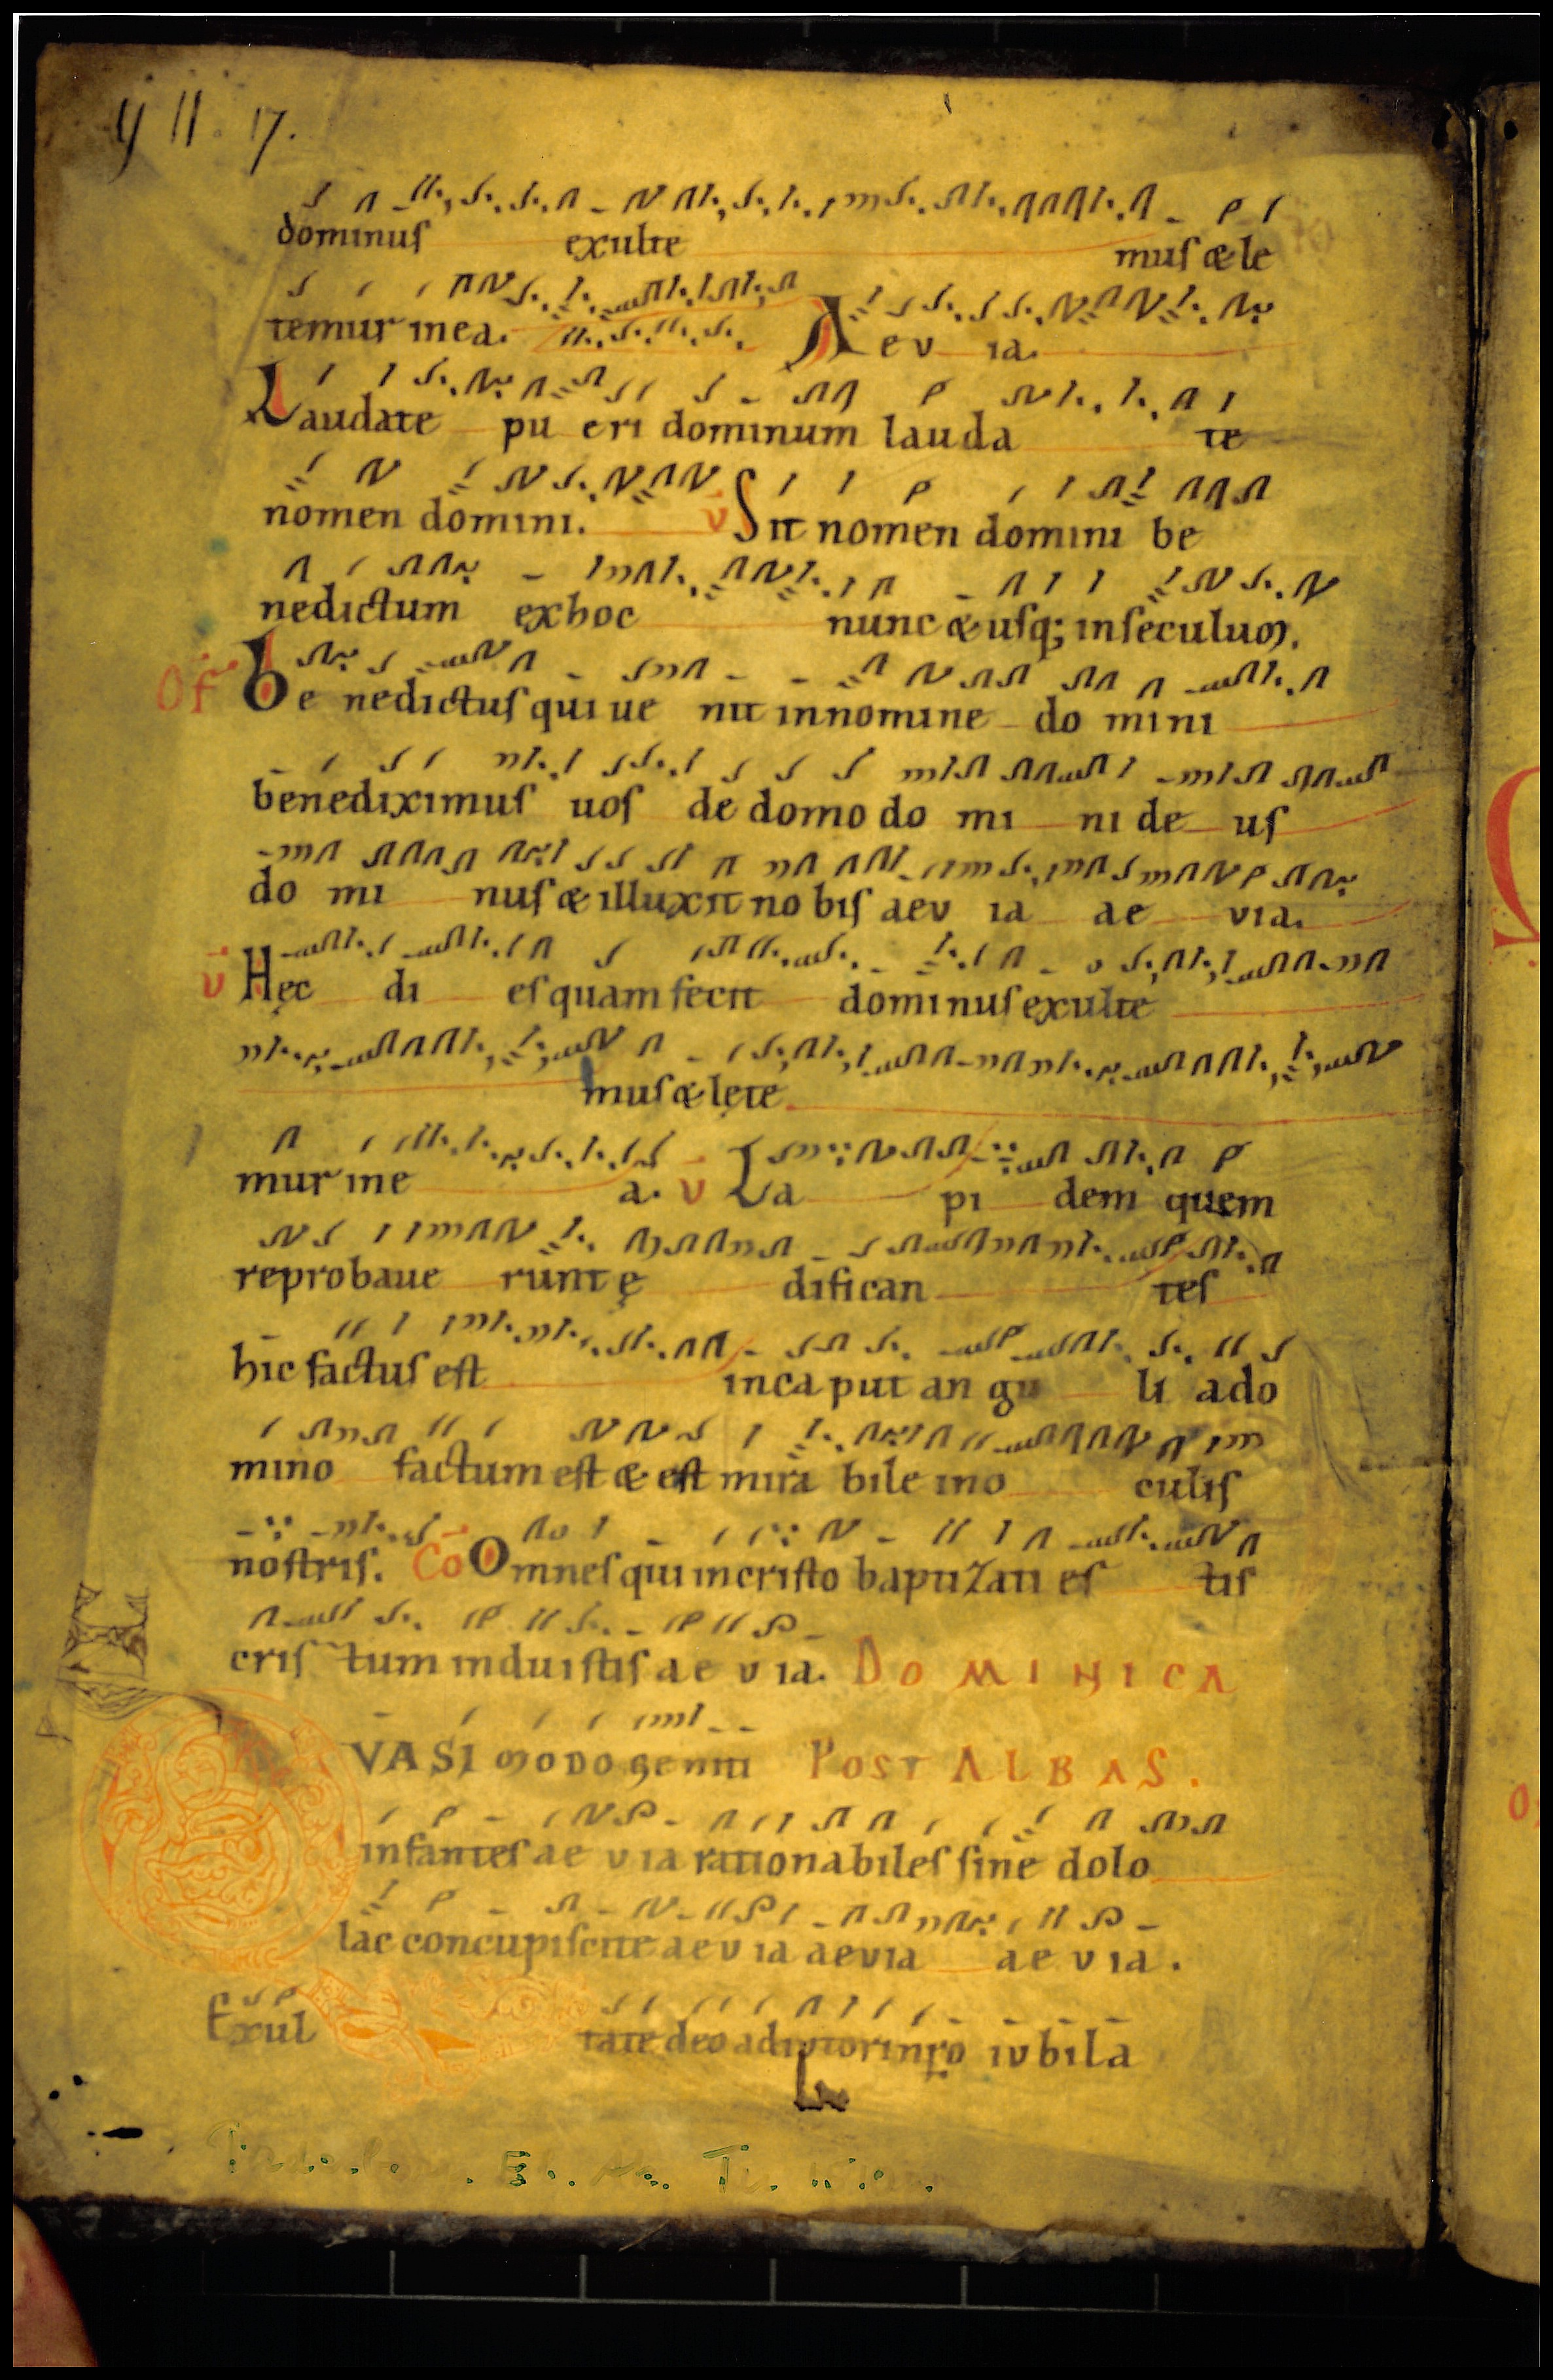 y II. 17.
dominus exulte mus & le
temur in ea. Aevia.
Laudate pu eri dominum lauda te
nomen domini. v Sit nomen domini be
nedictum ex hoc nunc & usq; in seculum.
Of Be nedictus qui ue nit in nomine do mini
benediximus uos de domo do mi ni de us
do mi nus & illuxit no bis aev ia ae via.
v Hęc di es quam fecit dominus exulte
mus & lęte
mur in e a. v La pi dem quem
reprobaue runt ę difican tes
hic factus est in ca put an gu li ado
mino factum est & est mira bile in o culis
nostris. Co Omnes qui in cristo baptizati es tis
cris tum induistis ae v ia. DOMINICA
VASI MODO geniti POST ALBAS.
infantes ae v ia rationabiles sine dolo
lac concupiscite aev ia aevia ae v ia.
Exul tate deo adiutori nr̄o iubila